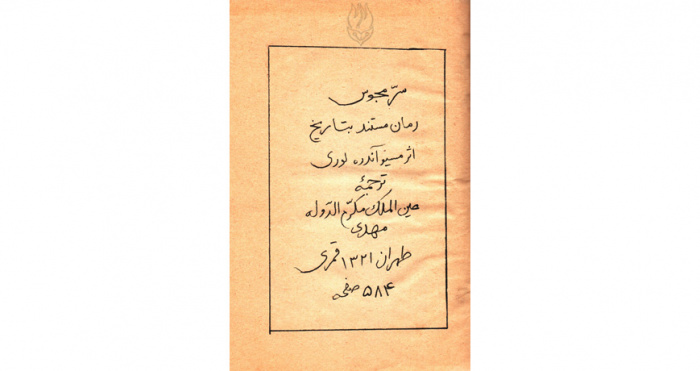 سرّ مجوس
رمان مستند بتاریخ
اثر مسیو آندره لوری
ترجمهٔ
عین الملک مکرّم الدوله
مهدی
طهران ۱۳۲۱ قمری
۵۸۴ صفحه